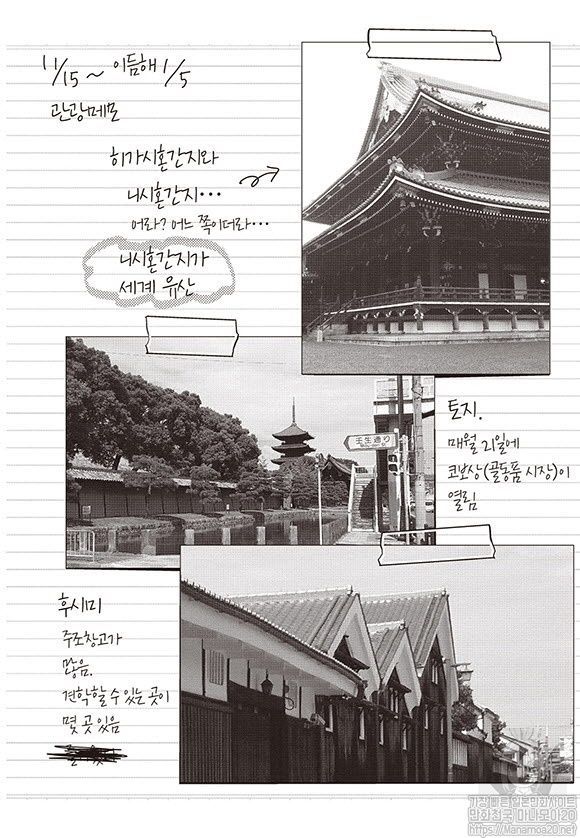 11/15 ~ 이듬해 1/5
관광메모
히가시혼간지와
니시혼간지...
어라? 어느 쪽이더라...
니시혼간지가
세계 유산
壬生通り
토지.
매월 21일에
코보상(골동품 시장)이
열림
후시미
주조창고가
많음.
견학할 수 있는 곳이
몇 곳 있음
가장빠른일본만화사이트
만화천국 마나모아20
https://Manamoa20.net/